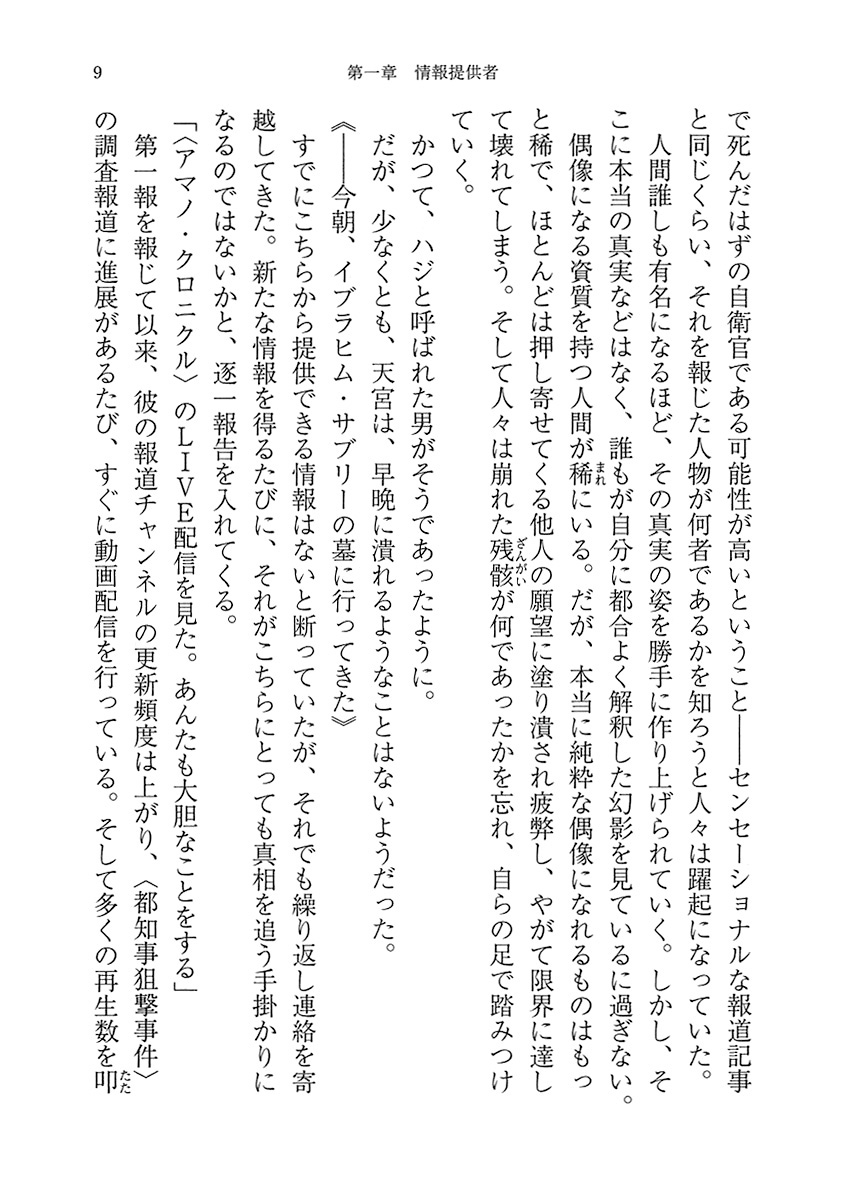 9
第一章　情報提供者
で死んだはずの自衛官である可能性が高いということ――センセーショナルな報道記事
と同じくらい、それを報じた人物が何者であるかを知ろうと人々は躍起になっていた。
　人間誰しも有名になるほど、その真実の姿を勝手に作り上げられていく。しかし、そ
こに本当の真実などはなく、誰もが自分に都合よく解釈した幻影を見ているに過ぎない。
　偶像になる資質を持つ人間が稀まれにいる。だが、本当に純粋な偶像になれるものはもっ
と稀で、ほとんどは押し寄せてくる他人の願望に塗り潰され疲弊し、やがて限界に達し
て壊れてしまう。そして人々は崩れた残骸ざんがいが何であったかを忘れ、自らの足で踏みつけ
ていく。
　かつて、ハジと呼ばれた男がそうであったように。
　だが、少なくとも、天宮は、早晩に潰れるようなことはないようだった。
《――今朝、イブラヒム・サブリーの墓に行ってきた》
　すでにこちらから提供できる情報はないと断っていたが、それでも繰り返し連絡を寄
越してきた。新たな情報を得るたびに、それがこちらにとっても真相を追う手掛かりに
なるのではないかと、逐一報告を入れてくる。
「〈アマノ・クロニクル〉のＬＩＶＥ配信を見た。あんたも大胆なことをする」
　第一報を報じて以来、彼の報道チャンネルの更新頻度は上がり、〈都知事狙撃事件〉
の調査報道に進展があるたび、すぐに動画配信を行っている。そして多くの再生数を叩たた